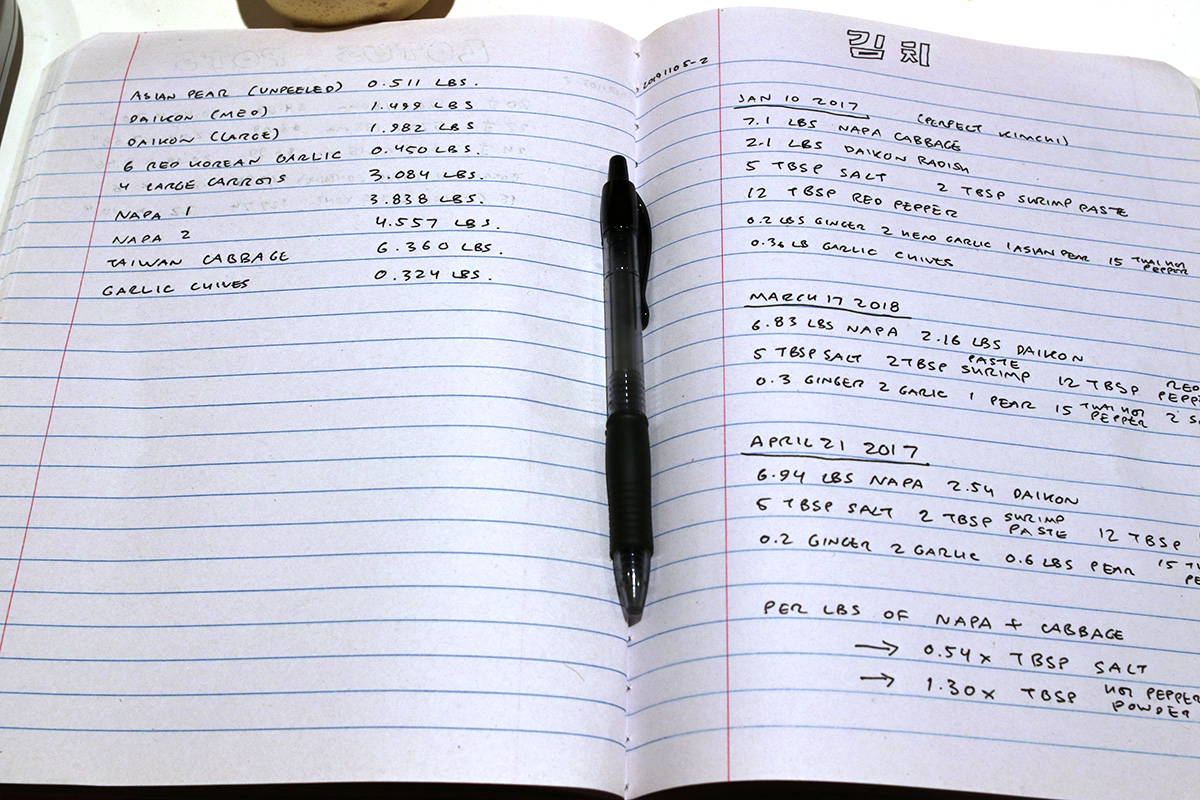 ASIAN PEAR (UNPEELED) 0.511 LBS.
DAIKON (MED) 1.499 LBS
DAIKON (LARGE) 1.982 LBS
6 RED KOREAN GARLIC 0.450 LBS.
4 LARGE CARROTS 3.084 LBS.
NAPA 1 3.838 LBS.
NAPA 2 4.557 LBS.
TAIWAN CABBAGE 6.360 LBS.
GARLIC CHIVES 0.324 LBS.
김치
JAN 10 2017 (PERFECT KIMCHI)
7.1 LBS NAPA CABBAGE
2.1 LBS DAIKON RADISH
5 TBSP SALT 2 TBSP SHRIMP PASTE
12 TBSP RED PEPPER
0.2 LBS GINGER 2 HEAD GARLIC 1 ASIAN PEAR 15 THAI HOT PEPPER
0.36 LB GARLIC CHIVES
MARCH 17 2018
6.83 LBS NAPA 2.16 LBS DAIKON
5 TBSP SALT 2 TBSP SHRIMP PASTE 12 TBSP RED PEPP
0.3 GINGER 2 GARLIC 1 PEAR 15 THAI HOT PEPPER 2 S
APRIL 21 2017
6.94 LBS NAPA 2.54 DAIKON
5 TBSP SALT 2 TBSP SHRIMP PASTE 12 TBSP
0.2 GINGER 2 GARLIC 0.6 LBS PEAR 15 T PE
PER LBS OF NAPA + CABBAGE
→ 0.54x TBSP SALT
→ 1.30x TBSP HOT PEPPER POWDER